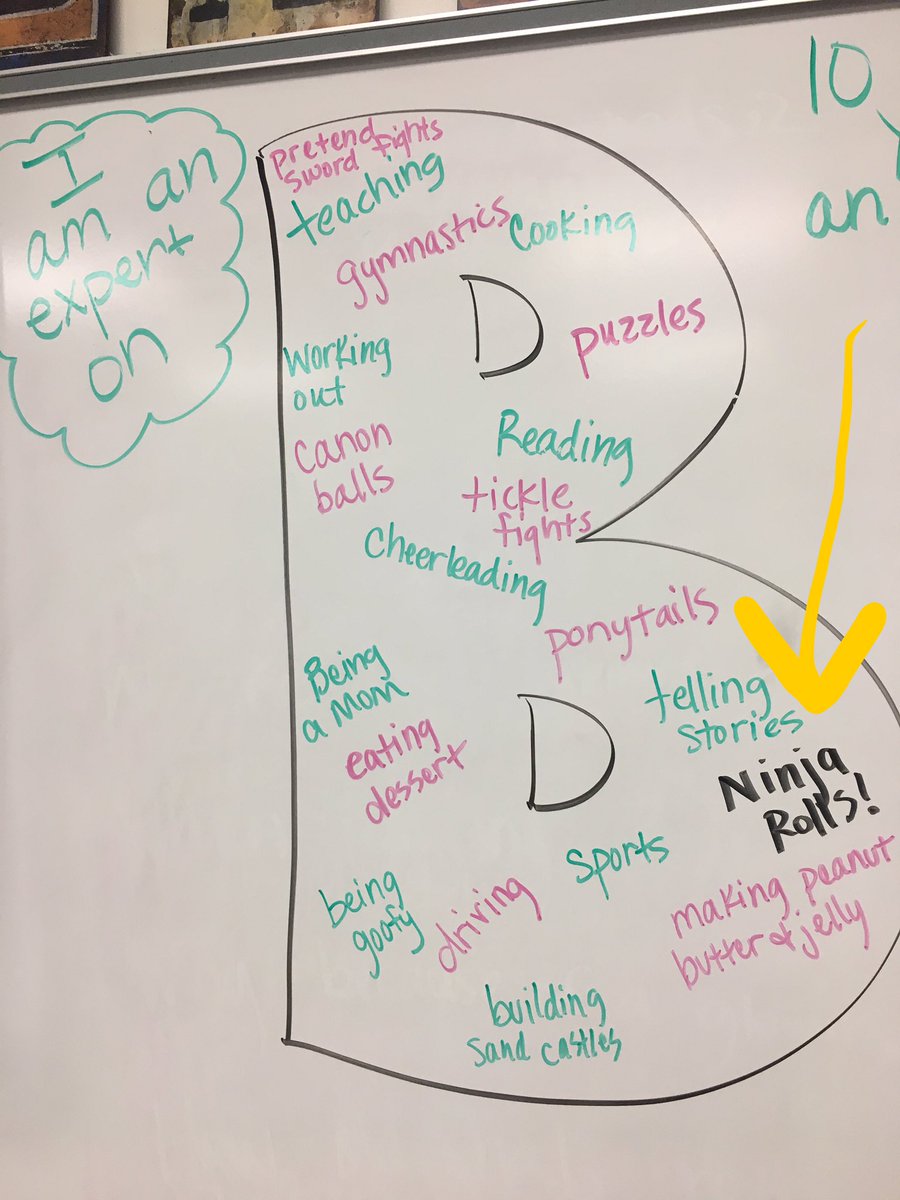 I
am an
expert
on
10
an
pretend
sword fights
teaching
gymnastics
Cooking
puzzles
Working
out
Canon
balls
Reading
tickle
fights
Cheerleading
ponytails
Being
a Mom
telling
stories
eating
dessert
Ninja
Rolls!
sports
being
goofy
driving
making peanut
butter & jelly
building
sand castles